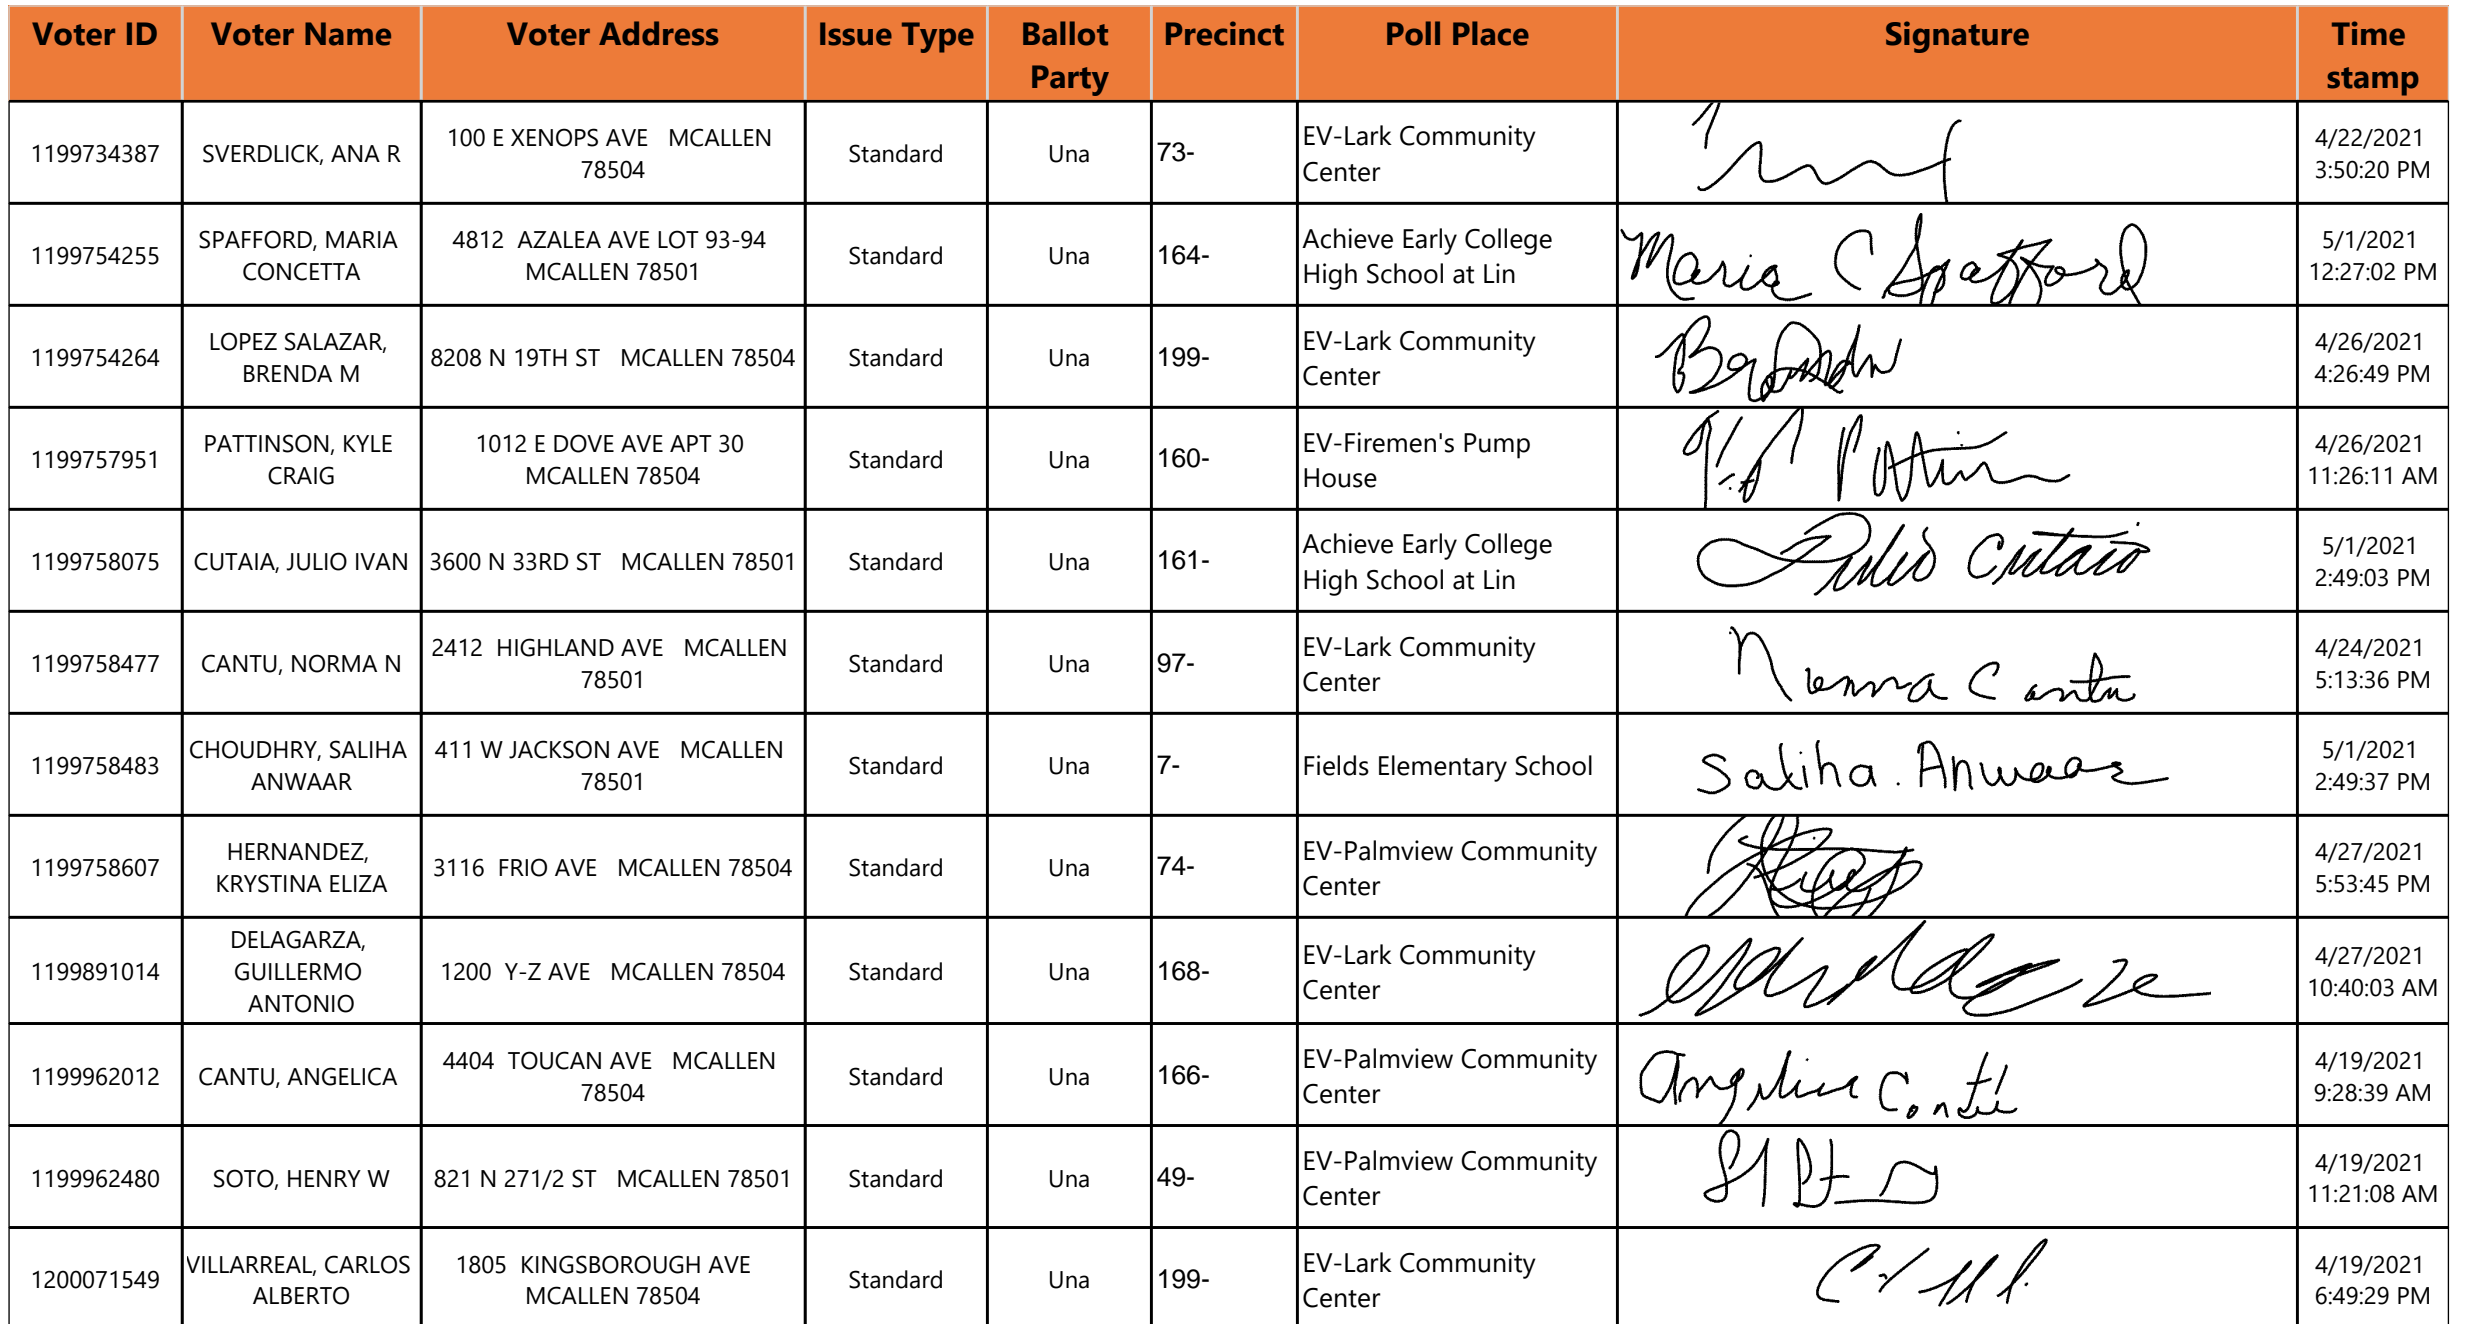 Voter ID Voter Name Voter Address Issue Type Ballot Party Precinct Poll Place Signature Time stamp
1199734387 SVERDLICK, ANA R 100 E XENOPS AVE MCALLEN 78504 Standard Una 73- EV-Lark Community Center 4/22/2021 3:50:20 PM
1199754255 SPAFFORD, MARIA CONCETTA 4812 AZALEA AVE LOT 93-94 MCALLEN 78501 Standard Una 164- Achieve Early College High School at Lin Maria C Spafford 5/1/2021 12:27:02 PM
1199754264 LOPEZ SALAZAR, BRENDA M 8208 N 19TH ST MCALLEN 78504 Standard Una 199- EV-Lark Community Center 4/26/2021 4:26:49 PM
1199757951 PATTINSON, KYLE CRAIG 1012 E DOVE AVE APT 30 MCALLEN 78504 Standard Una 160- EV-Firemen's Pump House 4/26/2021 11:26:11 AM
1199758075 CUTAIA, JULIO IVAN 3600 N 33RD ST MCALLEN 78501 Standard Una 161- Achieve Early College High School at Lin Julio Cutaia 5/1/2021 2:49:03 PM
1199758477 CANTU, NORMA N 2412 HIGHLAND AVE MCALLEN 78501 Standard Una 97- EV-Lark Community Center Norma Cantu 4/24/2021 5:13:36 PM
1199758483 CHOUDHRY, SALIHA ANWAAR 411 W JACKSON AVE MCALLEN 78501 Standard Una 7- Fields Elementary School Saliha. Anwaar 5/1/2021 2:49:37 PM
1199758607 HERNANDEZ, KRYSTINA ELIZA 3116 FRIO AVE MCALLEN 78504 Standard Una 74- EV-Palmview Community Center 4/27/2021 5:53:45 PM
1199891014 DELAGARZA, GUILLERMO ANTONIO 1200 Y-Z AVE MCALLEN 78504 Standard Una 168- EV-Lark Community Center 4/27/2021 10:40:03 AM
1199962012 CANTU, ANGELICA 4404 TOUCAN AVE MCALLEN 78504 Standard Una 166- EV-Palmview Community Center Angelica Cantú 4/19/2021 9:28:39 AM
1199962480 SOTO, HENRY W 821 N 271/2 ST MCALLEN 78501 Standard Una 49- EV-Palmview Community Center 4/19/2021 11:21:08 AM
1200071549 VILLARREAL, CARLOS ALBERTO 1805 KINGSBOROUGH AVE MCALLEN 78504 Standard Una 199- EV-Lark Community Center 4/19/2021 6:49:29 PM